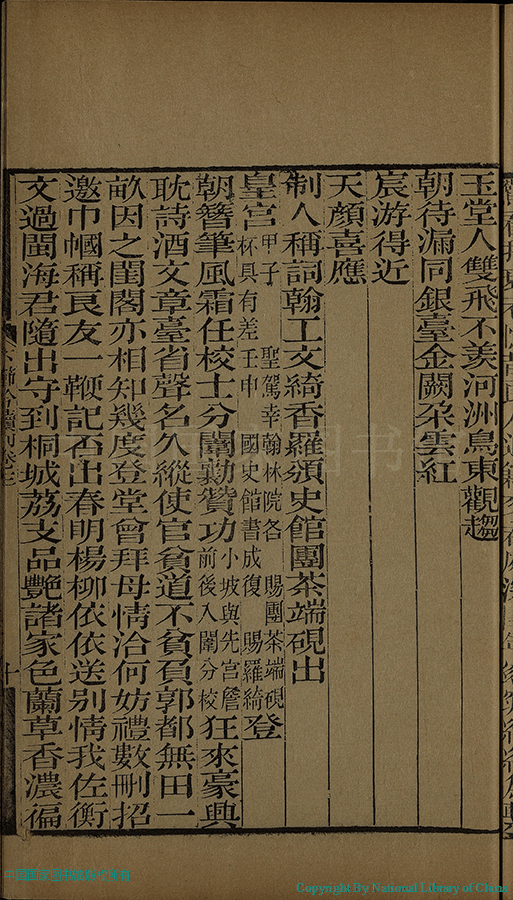 玉堂人雙飛不羨河洲鳥東觀趨
朝待漏同銀臺金闕朶雲紅
宸游得近
天顔喜應
制人稱詞翰工文綺香羅頒史館團茶端硯出
皇宫甲子聖駕幸翰林院各賜團茶端硯
杯具有差壬申國史館書成復賜羅綺登
朝簪筆風霜任校士分闈勷贊功小坡與先宫詹
前後入闈分校狂來豪興
耽詩酒文章臺省聲名久縱使官貧道不貧負郭都無田一
畝因之閨閣亦相知幾度登堂曾拜母情洽何妨禮數刪招
邀巾幗稱良友一鞭記否出春明楊柳依依送别情我佐衡
文過閩海君隨出守到桐城荔支品艷諸家色蘭草香濃徧
十
Copyright By National Library of China